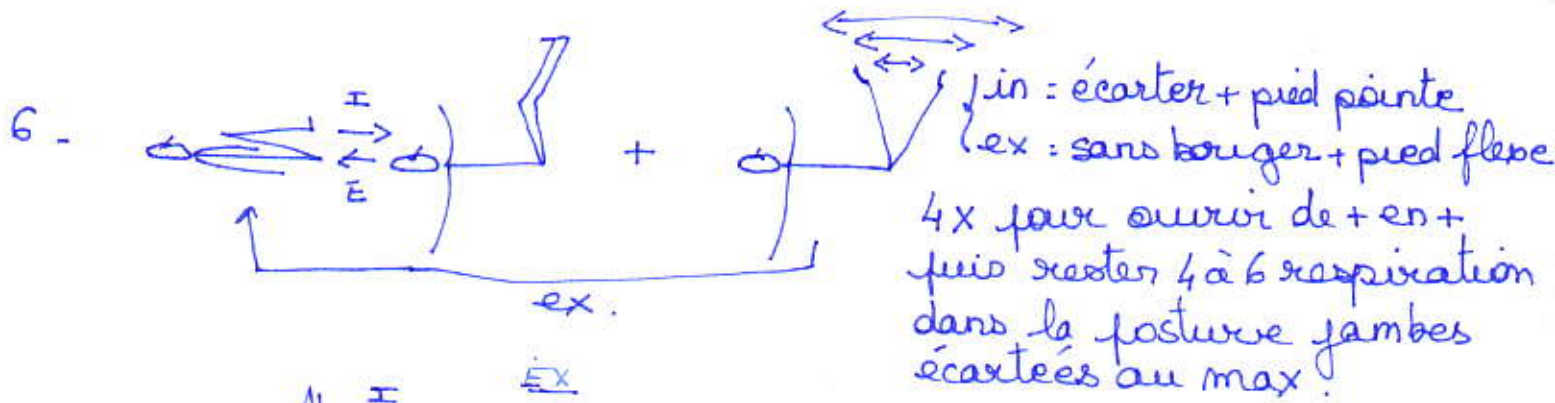 6 -
I
E
+
in : écarter + pied pointe
ex : sans bouger + pied flexe
4x pour ouvrir de + en +
puis rester 4 à 6 respiration
dans la posture jambes
écartées au max.
ex.
I
EX